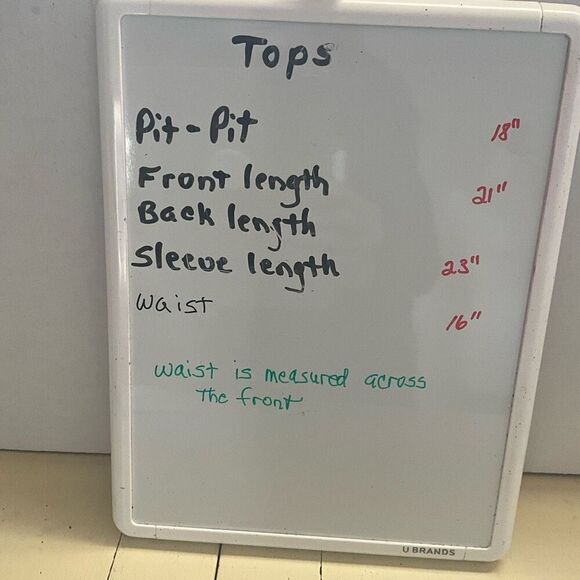 Tops
Pit - Pit 18"
Front length 21"
Back length
Sleeve length 23"
waist 16"
waist is measured across
the front
U BRANDS